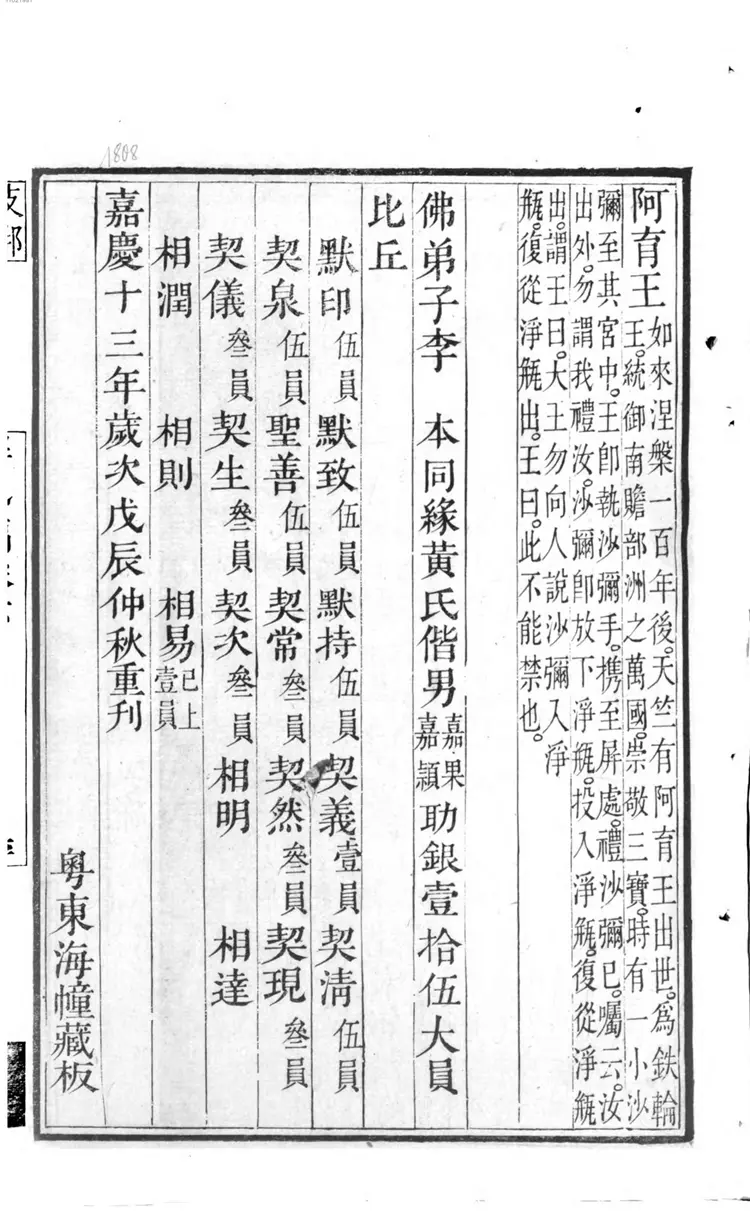 阿育王如來涅槃一百年後。天竺有阿育王出世。爲鉄輪
王。統御南贍部洲之萬國。崇敬三寶。時有一小沙
彌至其宮中。王卽執沙彌手。携至屏處。禮沙彌已。囑云。汝
出外。勿謂我禮汝。沙彌卽放下淨瓶。投入淨瓶。復從淨瓶
出。謂王曰。大王勿向人說沙彌入淨
瓶。復從淨瓶出。王曰。此不能禁也。
佛弟子李 本同緣黃氏偕男嘉果嘉頴助銀壹拾伍大員
比丘
默印伍員 默致伍員 默持伍員 契義壹員 契清伍員
契泉伍員 聖善伍員 契常叄員 契然叄員 契現叄員
契儀叄員 契生叄員 契次叄員 相明 相達
相潤 相則 相易已上壹員
嘉慶十三年歲次戊辰仲秋重刊
粵東海幢藏板
1808